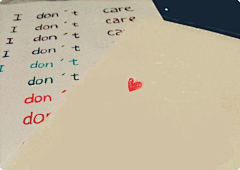 I don't care
I don't care
I don't ca
I don't
I don't
don't
don'
don